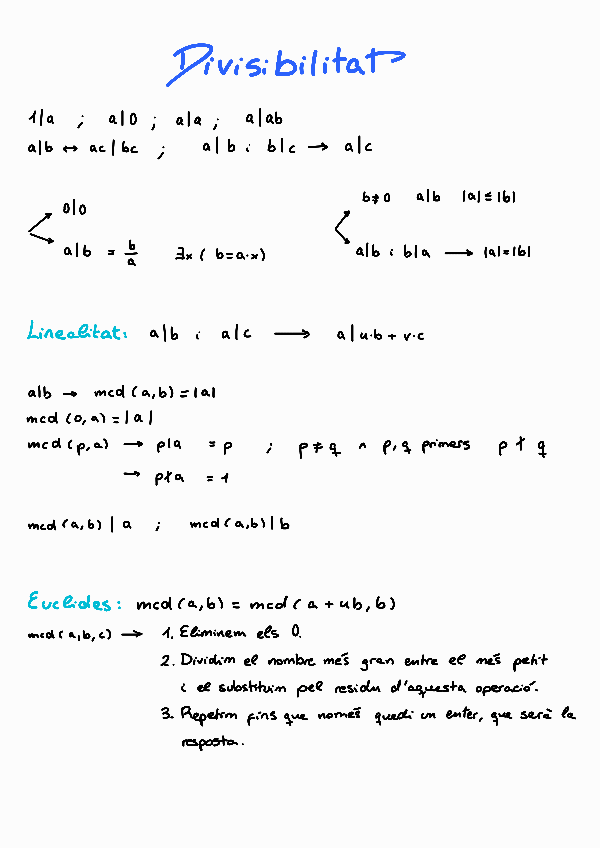 Divisibilitat
1|a ; a|0 ; a|a ; a|ab
a|b ↔ ac|bc ; a|b i b|c → a|c
0|0
a|b = b/a ∃x ( b=a·x)
b≠0 a|b |a|≤|b|
a|b i b|a → |a|=|b|
Linealitat: a|b i a|c → a|u·b + v·c
a|b → mcd (a,b) = |a|
mcd (0,a) = |a|
mcd (p,a) → p|a = p ; p ≠ q ∧ p,q primers p ∤ q
→ p∤a = 1
mcd (a,b) | a ; mcd (a,b) | b
Euclides: mcd (a,b) = mcd ( a + ub, b)
mcd (a,b,c) → 1. Eliminem els 0.
2. Dividim el nombre més gran entre el més petit
i el substituim pel residu d'aquesta operació.
3. Repetim fins que només quedi un enter, que serà la
resposta.